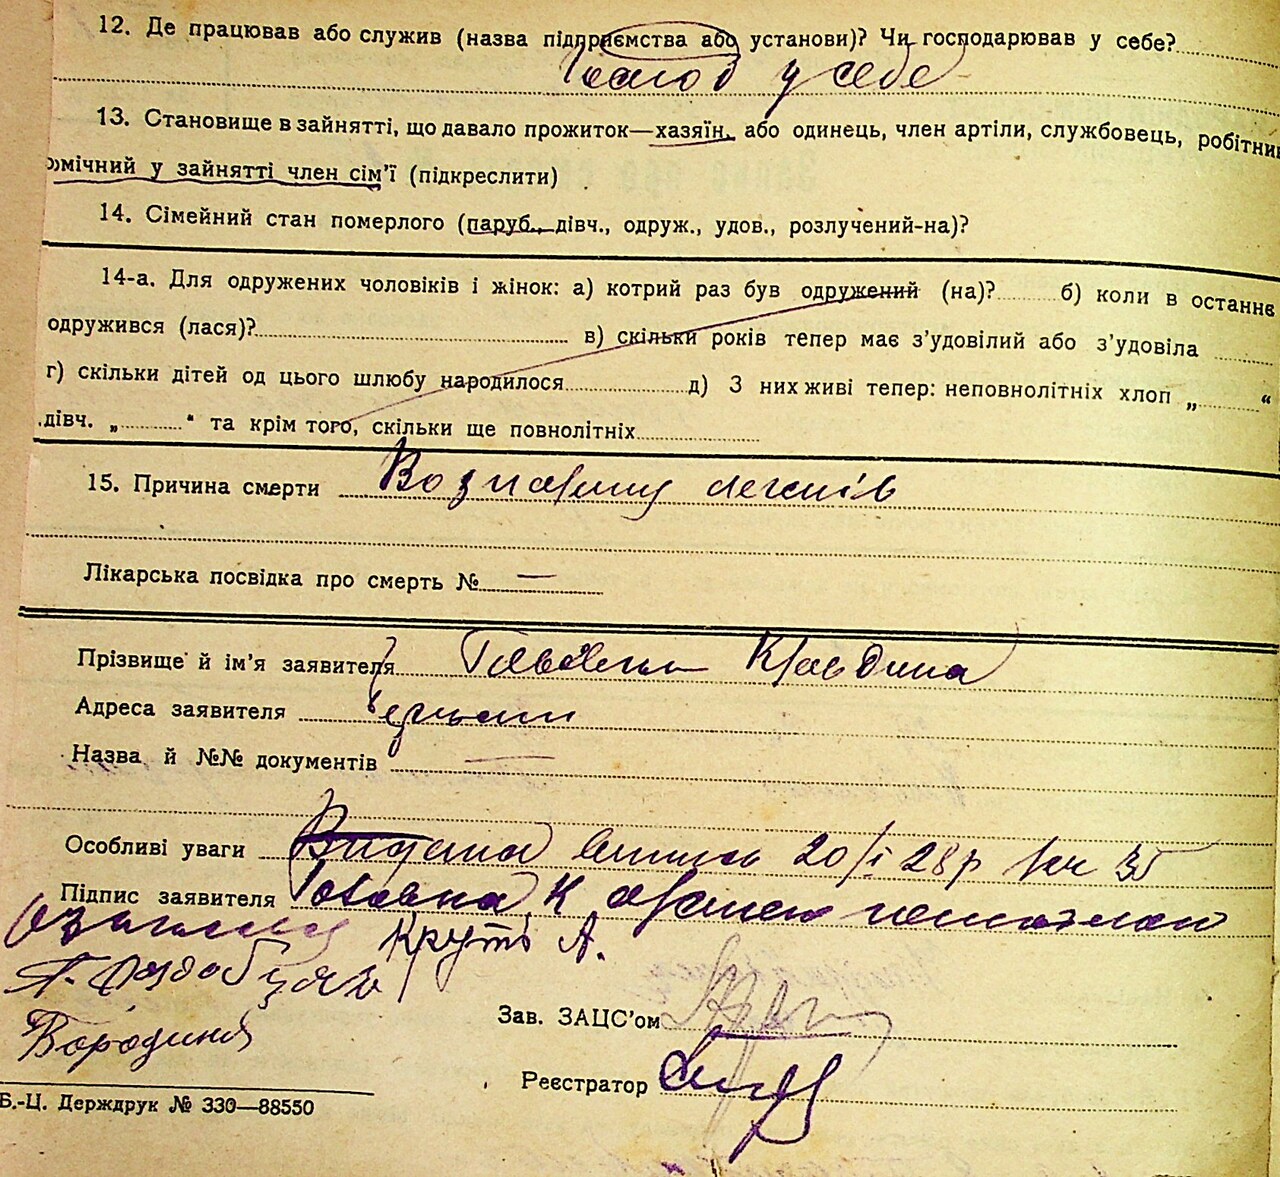 12. Де працював або служив (назва підприємства або установи)? Чи господарював у себе?
у себе
13. Становище в зайнятті, що давало прожиток—хазяїн, або одинець, член артіли, службовець, робітник
омічний у зайнятті член сім'ї (підкреслити)
14. Сімейний стан померлого (паруб., дівч., одруж., удов., розлучений-на)?
14-а. Для одружених чоловіків і жінок: а) котрий раз був одружений (на)? б) коли в останнє
одружився (лася)? в) скільки років тепер має з'удовілий або з'удовіла
г) скільки дітей од цього шлюбу народилося д) З них живі тепер: неповнолітніх хлоп „ “
дівч. „ “ та крім того, скільки ще повнолітніх
15. Причина смерти легенів
Лікарська посвідка про смерть № —
Прізвище й ім'я заявителя Клавдина
Адреса заявителя
Назва й №№ документів —
Особливі уваги Видана 20/I 28р 35
Підпис заявителя К
Круть А.
Бородина
Зав. ЗАЦС'ом
Реєстратор
Б.-Ц. Держдрук № 330—88550